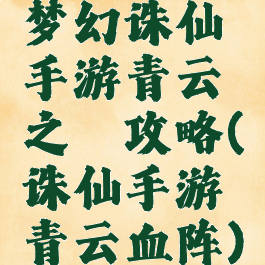 梦幻诛仙
手游青云
之 攻略(
诛仙手游
青云血阵)